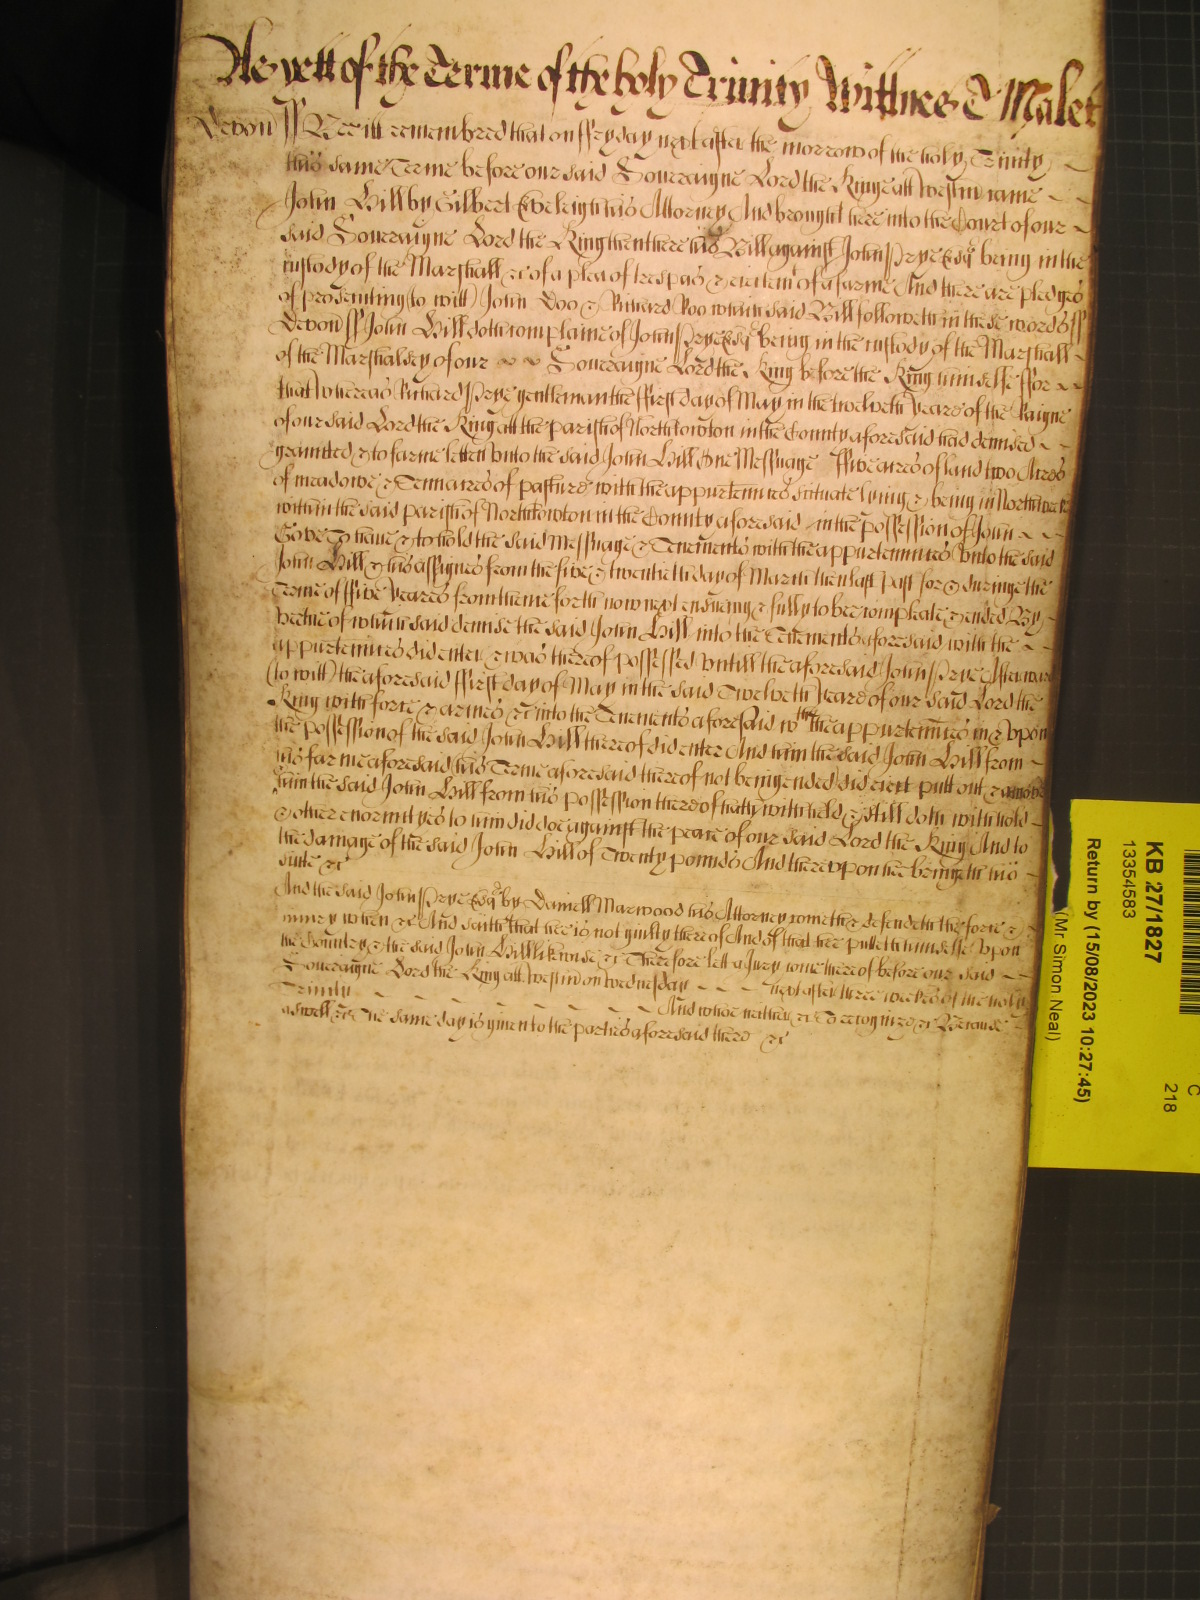 As yett of the Terme of the holy Trinity Wittnes T Malet
Devon ss Bee itt remembred that on ffryday next after the morrow of the holy Trinity
this same Terme before our said Soveraigne Lord the Kinge att Westm came
John Hill by Gilbert Eveleigh his Attorney And brought here into the Court of our
said Soveraigne Lord the King then there his Bill against John Prye Esqr being in the
custody of the Marshall &c of a plea of trespas & eiectmt of a farme And there are pledges
of prosecuting (to witt) John Doo & Richard Roo which said Bill followeth in these words ss
Devon ss John Hill doth complaine of John Prye Esqr being in the custody of the Marshall
of the Marshalsey of our Soveraigne Lord the King before the King himselfe ffor
that whereas Richard Prye gentleman the ffirst day of May in the twelveth yeare of the Raigne
of our said Lord the King att the parish of North in the County aforesaid had demised
graunted & to farme letten unto the said John Hill One Messuage ffive acres of land two Acres
of meadowe & Tenn acres of pasture with the appurtenncs scituate lying & being in
within the said parish of North in the County aforesaid in the possession of John
Gove To have & to hold the said Messuage & Tenements with the appurtenncs unto the said
John Hill & his assignes from the five & twentieth day of March then last past for & dureinge the
Terme of ffive Yeares from thence forth now next ensueing & fully to bee compleate & ended By
vertue of which said demise the said John Hill into the Tenements aforesaid with the
appurtenncs did enter & was thereof possessed Untill the aforesaid John Prye Afterward
(to witt) the aforesaid ffirst day of May in the said Twelveth yeare of our said Lord the
King with force & armes &c into the Tenements aforesaid wth the appurtenncs in & upon
the possession of the said John Hill thereof did enter And him the said John Hill from
his farme aforesaid his Terme aforesaid thereof not being ended did eiect putt out & amove
him the said John Hill from his possession thereof hath withheld & still doth withhold
& other enormityes to him did doe against the peace of our said Lord the King And to
the damage of the said John Hill of Twenty pounds And thereupon hee bringeth his
suite &c
And the said John Prye Esqr by Daniell Marwood his Attorney cometh & defendeth the force &
iniury when &c And saith that hee is not guilty thereof And of that hee putteth himselfe Upon
the Country & the said John Hill likewise &c Therefore lett a Jury come thereof before our said
Soveraigne Lord the King att Westm on Wednesday next after three weekes of the holy
Trinity And whoe neither &c To recognize &c Because
aswell &c The same day is given to the parties aforesaid there &c
KB 27/1827
13354583
Return by (15/08/2023 10:27:45)
(Mr Simon Neal)
C
218